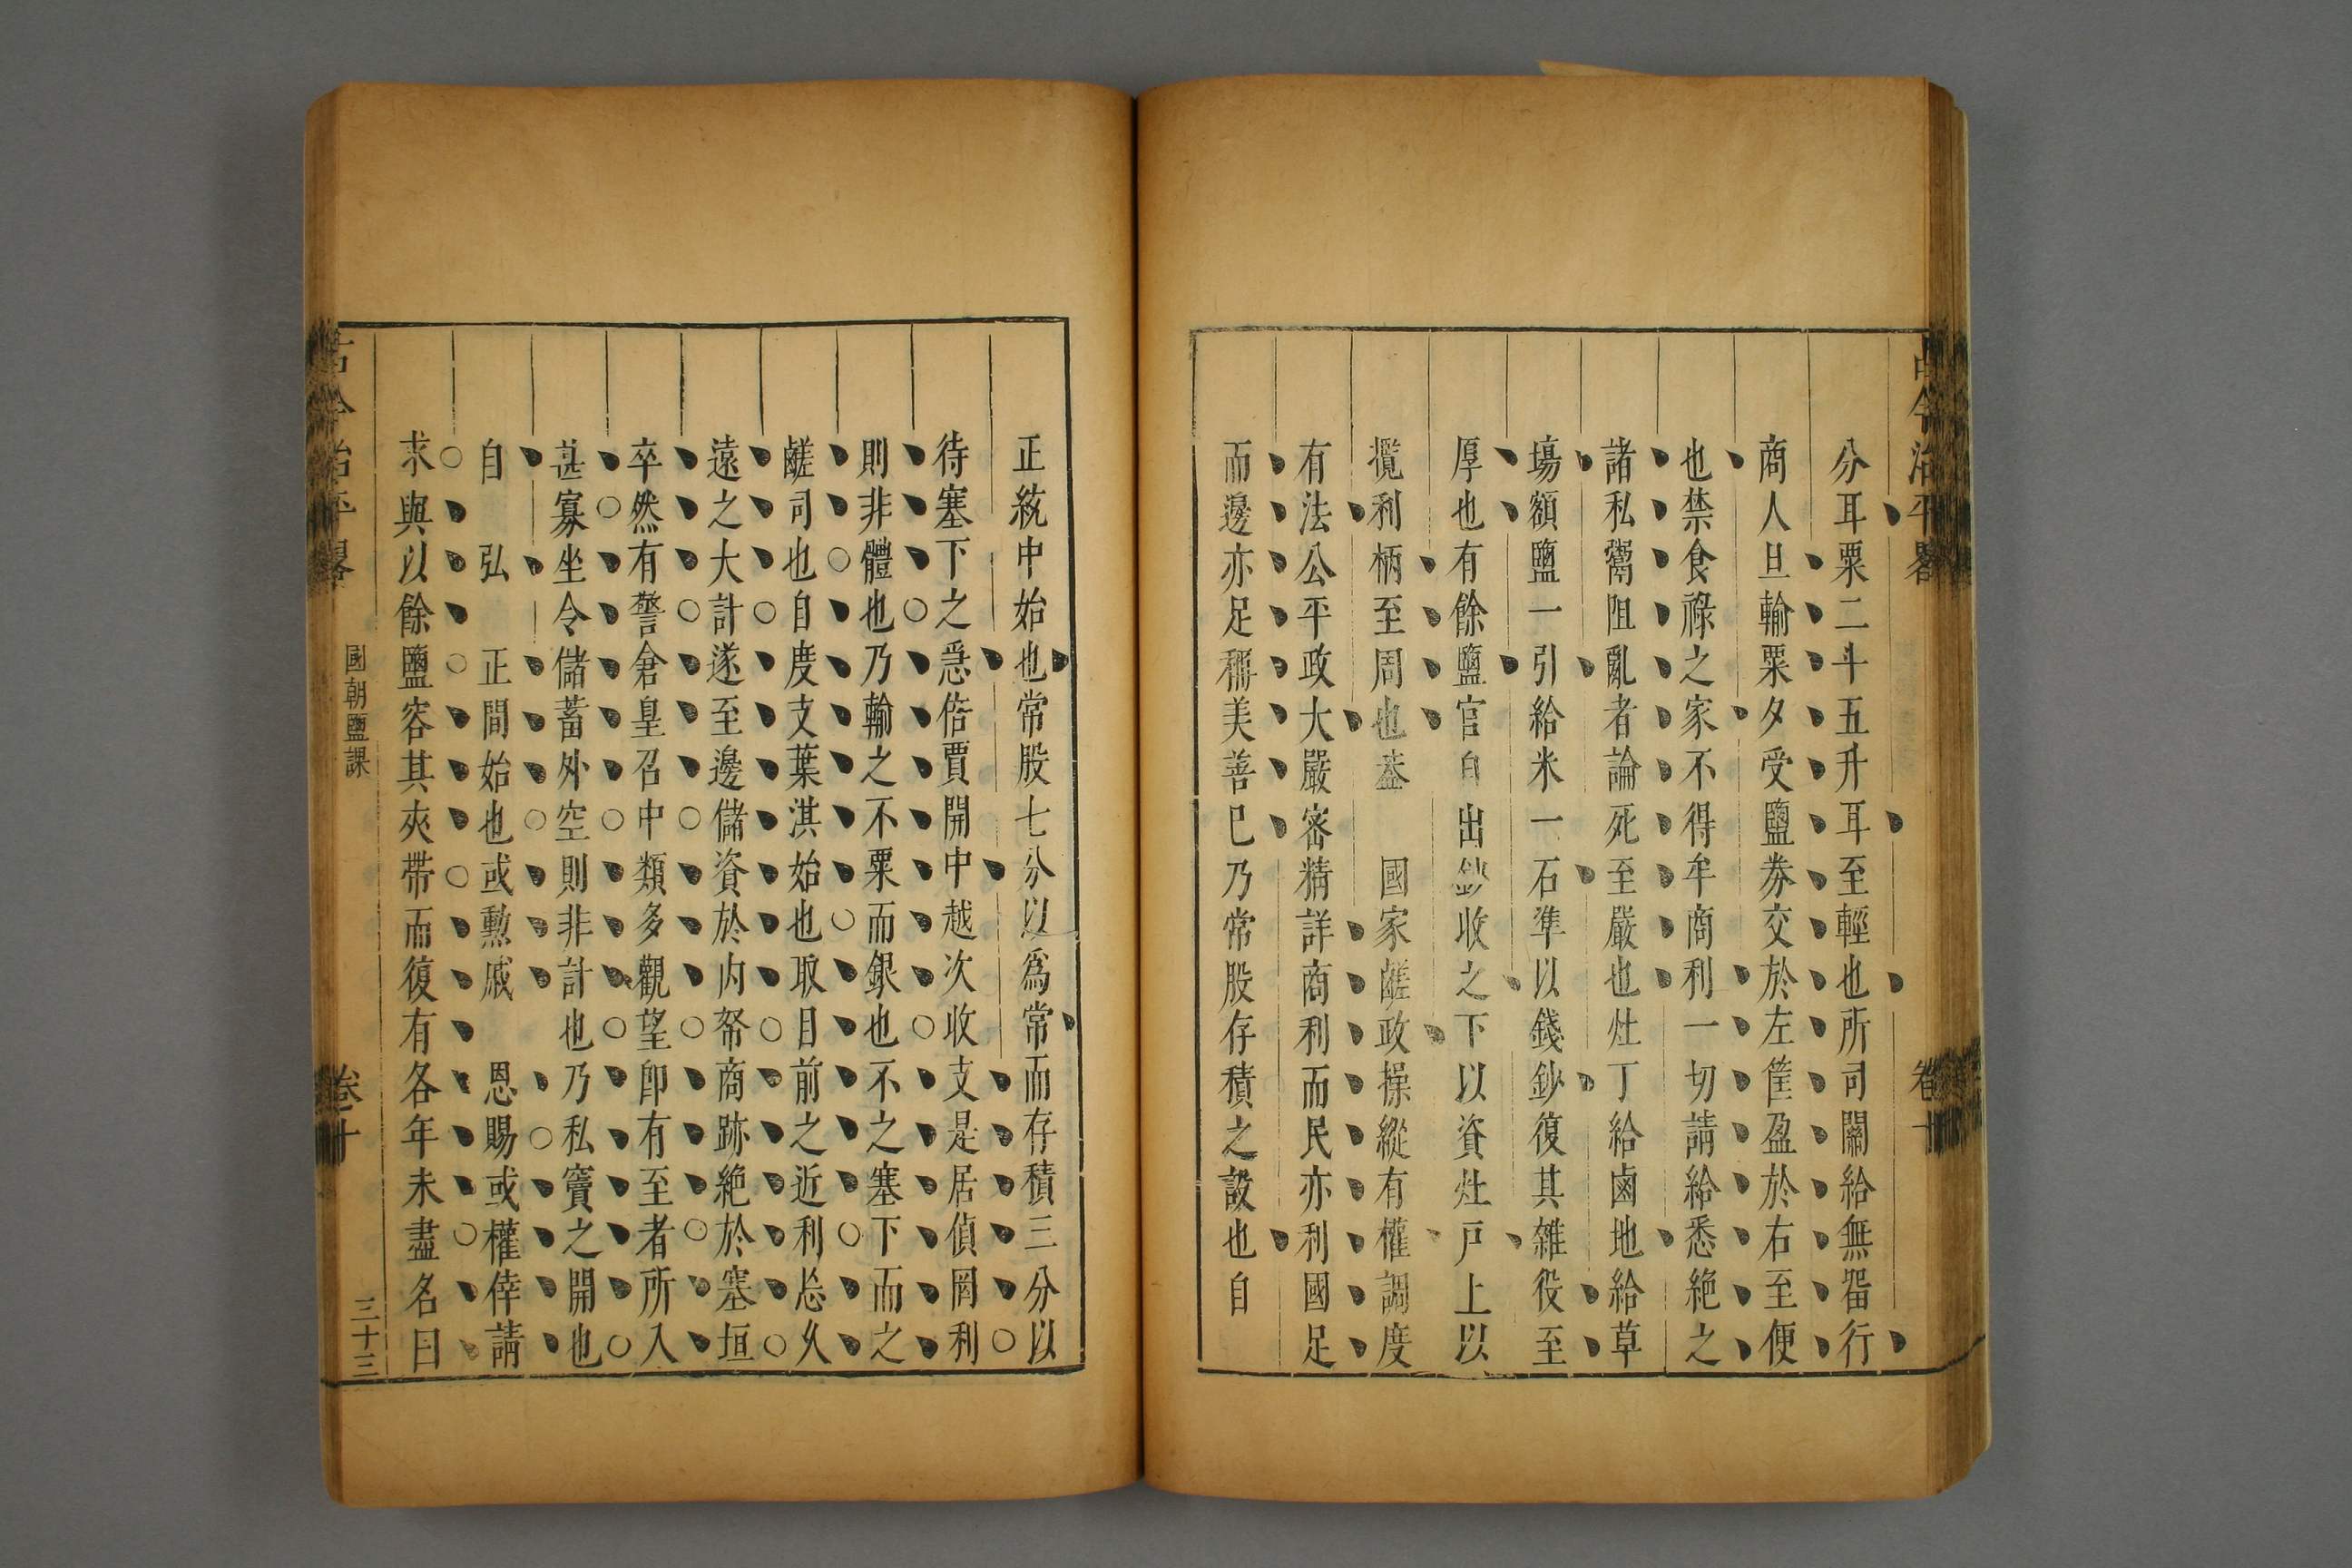 古今治平畧
卷十
分耳粟二斗五升耳至輕也所司關給無畱行
商人旦輸粟夕受鹽券交於左筐盈於右至便
也禁食祿之家不得牟商利一切請給悉絕之
諸私鬻阻亂者論死至嚴也灶丁給鹵地給草
塲額鹽一引給米一石準以錢鈔復其雜役至
厚也有餘鹽官自出鈔收之下以資灶戸上以
攬利柄至周也葢　國家鹺政操縱有權調度
有法公平政大嚴密精詳商利而民亦利國足
而邊亦足稱美善已乃常股存積之設也自
正統中始也常股七分以爲常而存積三分以
待塞下之急倍賈開中越次收支是居偵罔利
則非體也乃輸之不粟而銀也不之塞下而之
鹺司也自度支葉淇始也取目前之近利忘久
遠之大計遂至邊儲資於内帑商跡絕於塞垣
卒然有警倉皇召中類多觀望卽有至者所入
甚寡坐令儲蓄外空則非計也乃私竇之開也
自　弘　正間始也或勲戚　恩賜或權倖請
求與以餘鹽容其夾帶而復有各年未盡名曰
古今治平畧
國朝鹽課
卷十
三十三